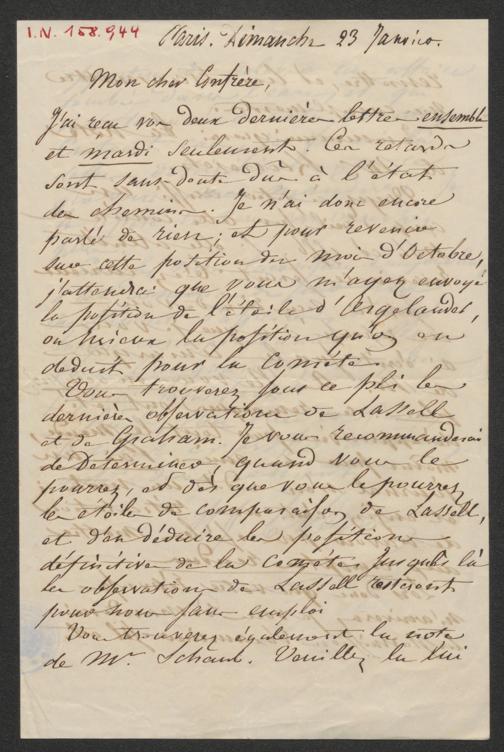 I.N. 158.944
Paris. Dimanche 23 Janvier.
Mon cher Confrère,
J'ai reçu vos deux dernières lettres ensemble
et mardi seulement. Ces retards
sont sans doute dûs à l'état
des chemins. Je n'ai donc encore
parlé de rien; et pour revenir
sur cette position du mois d'Octobre,
j'attendrai que vous m'ayez envoyé
la position de l'étoile d'Argelander,
ou mieux la position qu'on en
déduit pour la Comète.
Vous trouverez sous ce pli les
dernières observations de Lassell
et de Graham. Je vous recommanderai
de déterminer, quand vous le
pourrez, et dès que vous le pourrez,
les étoiles de comparaison de Lassell,
et d'en déduire les positions
définitives de la Comète. Jusques là
les observations de Lassell resteront
pour nous sans emploi
Vous trouverez également la note
de Mr. Schaub. Veuillez la lui